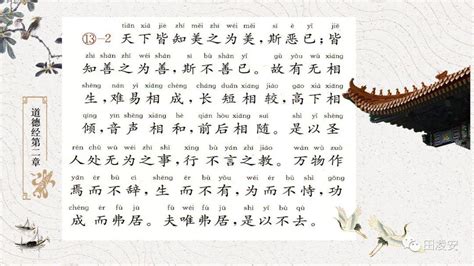 tiān xià jiē zhī měi zhī wéi měi sī è yǐ jiē
⑬-2 天下皆知美之为美,斯恶已;皆
zhī shàn zhī wéi shàn sī bú shàn yǐ gù yǒu wú xiāng
知善之为善,斯不善已。故有无相
shēng nán yì xiāng chéng cháng duǎn xiāng jiào gāo xià xiāng
生,难易相成,长短相较,高下相
qīng yīn shēng xiāng hè qián hòu xiāng suí shì yǐ shèng
倾,音声相和,前后相随。是以圣
rén chǔ wú wéi zhī shì xíng bù yán zhī jiào wàn wù zuò
人处无为之事,行不言之教。万物作
yān ér bù cí shēng ér bù yǒu wéi ér bú shì gōng
焉而不辞,生而不有,为而不恃,功
chéng ér fú jū fū wéi fú jū shì yǐ bú qù
成而弗居。夫唯弗居,是以不去。
道德经第二章
田凌安